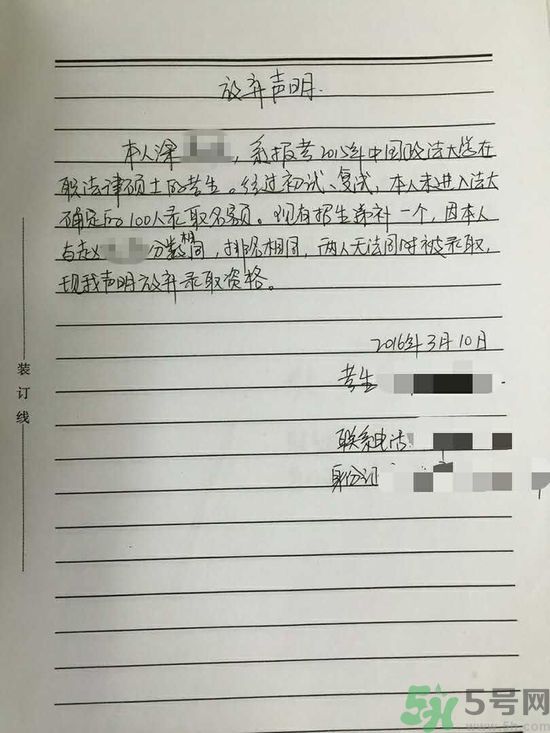 放弃声明
本人深 ，系报考2015年中国政法大学在
职法律硕士的考生。经过初试、复试，本人未进入法大
确定的100人录取名额。现有招生递补一个，因本人
与赵 分数相同，排名相同，两人无法同时被录取，
现我声明放弃录取资格。
2016年3月10日
考生
联系电话:
身份证
装订线
5号网
www.5h.com